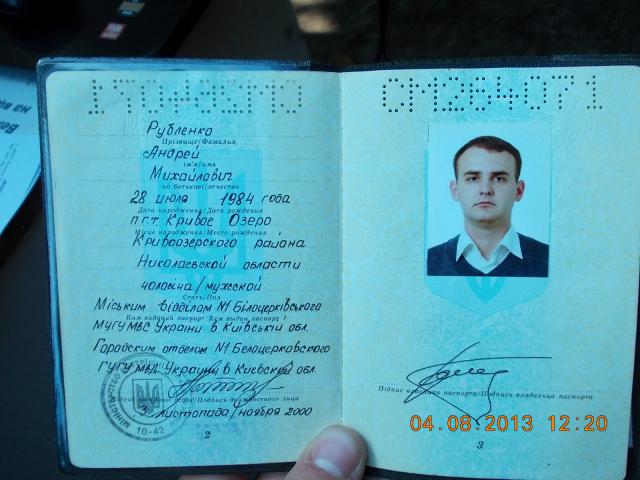 Рубленко
Прізвище/Фамилия
Андрей
ім'я/имя
Михайлович
по батькові/отчество
28 июля 1984 года
Дата народження/Дата рождения
п.г.т. Кривое Озеро
Місце народження/Место рождения
Кривоозерского района
Николаевской области
чоловіча/мужской
Стать/Пол
Міським відділом №1 Білоцерківського
Ким виданий паспорт/Кем выдан паспорт
МУГУМВС України в Київській обл.
Городским отделом №1 Белоцерковского
ГУГУ МВД Украины в Киевской обл
Підпис посадової особи/Подпись должностного лица
3 листопада/ноября 2000
10-42
2
СМ264071
Підпис власника паспорта/Подпись владельца паспорта
04.08.2013 12:20
3